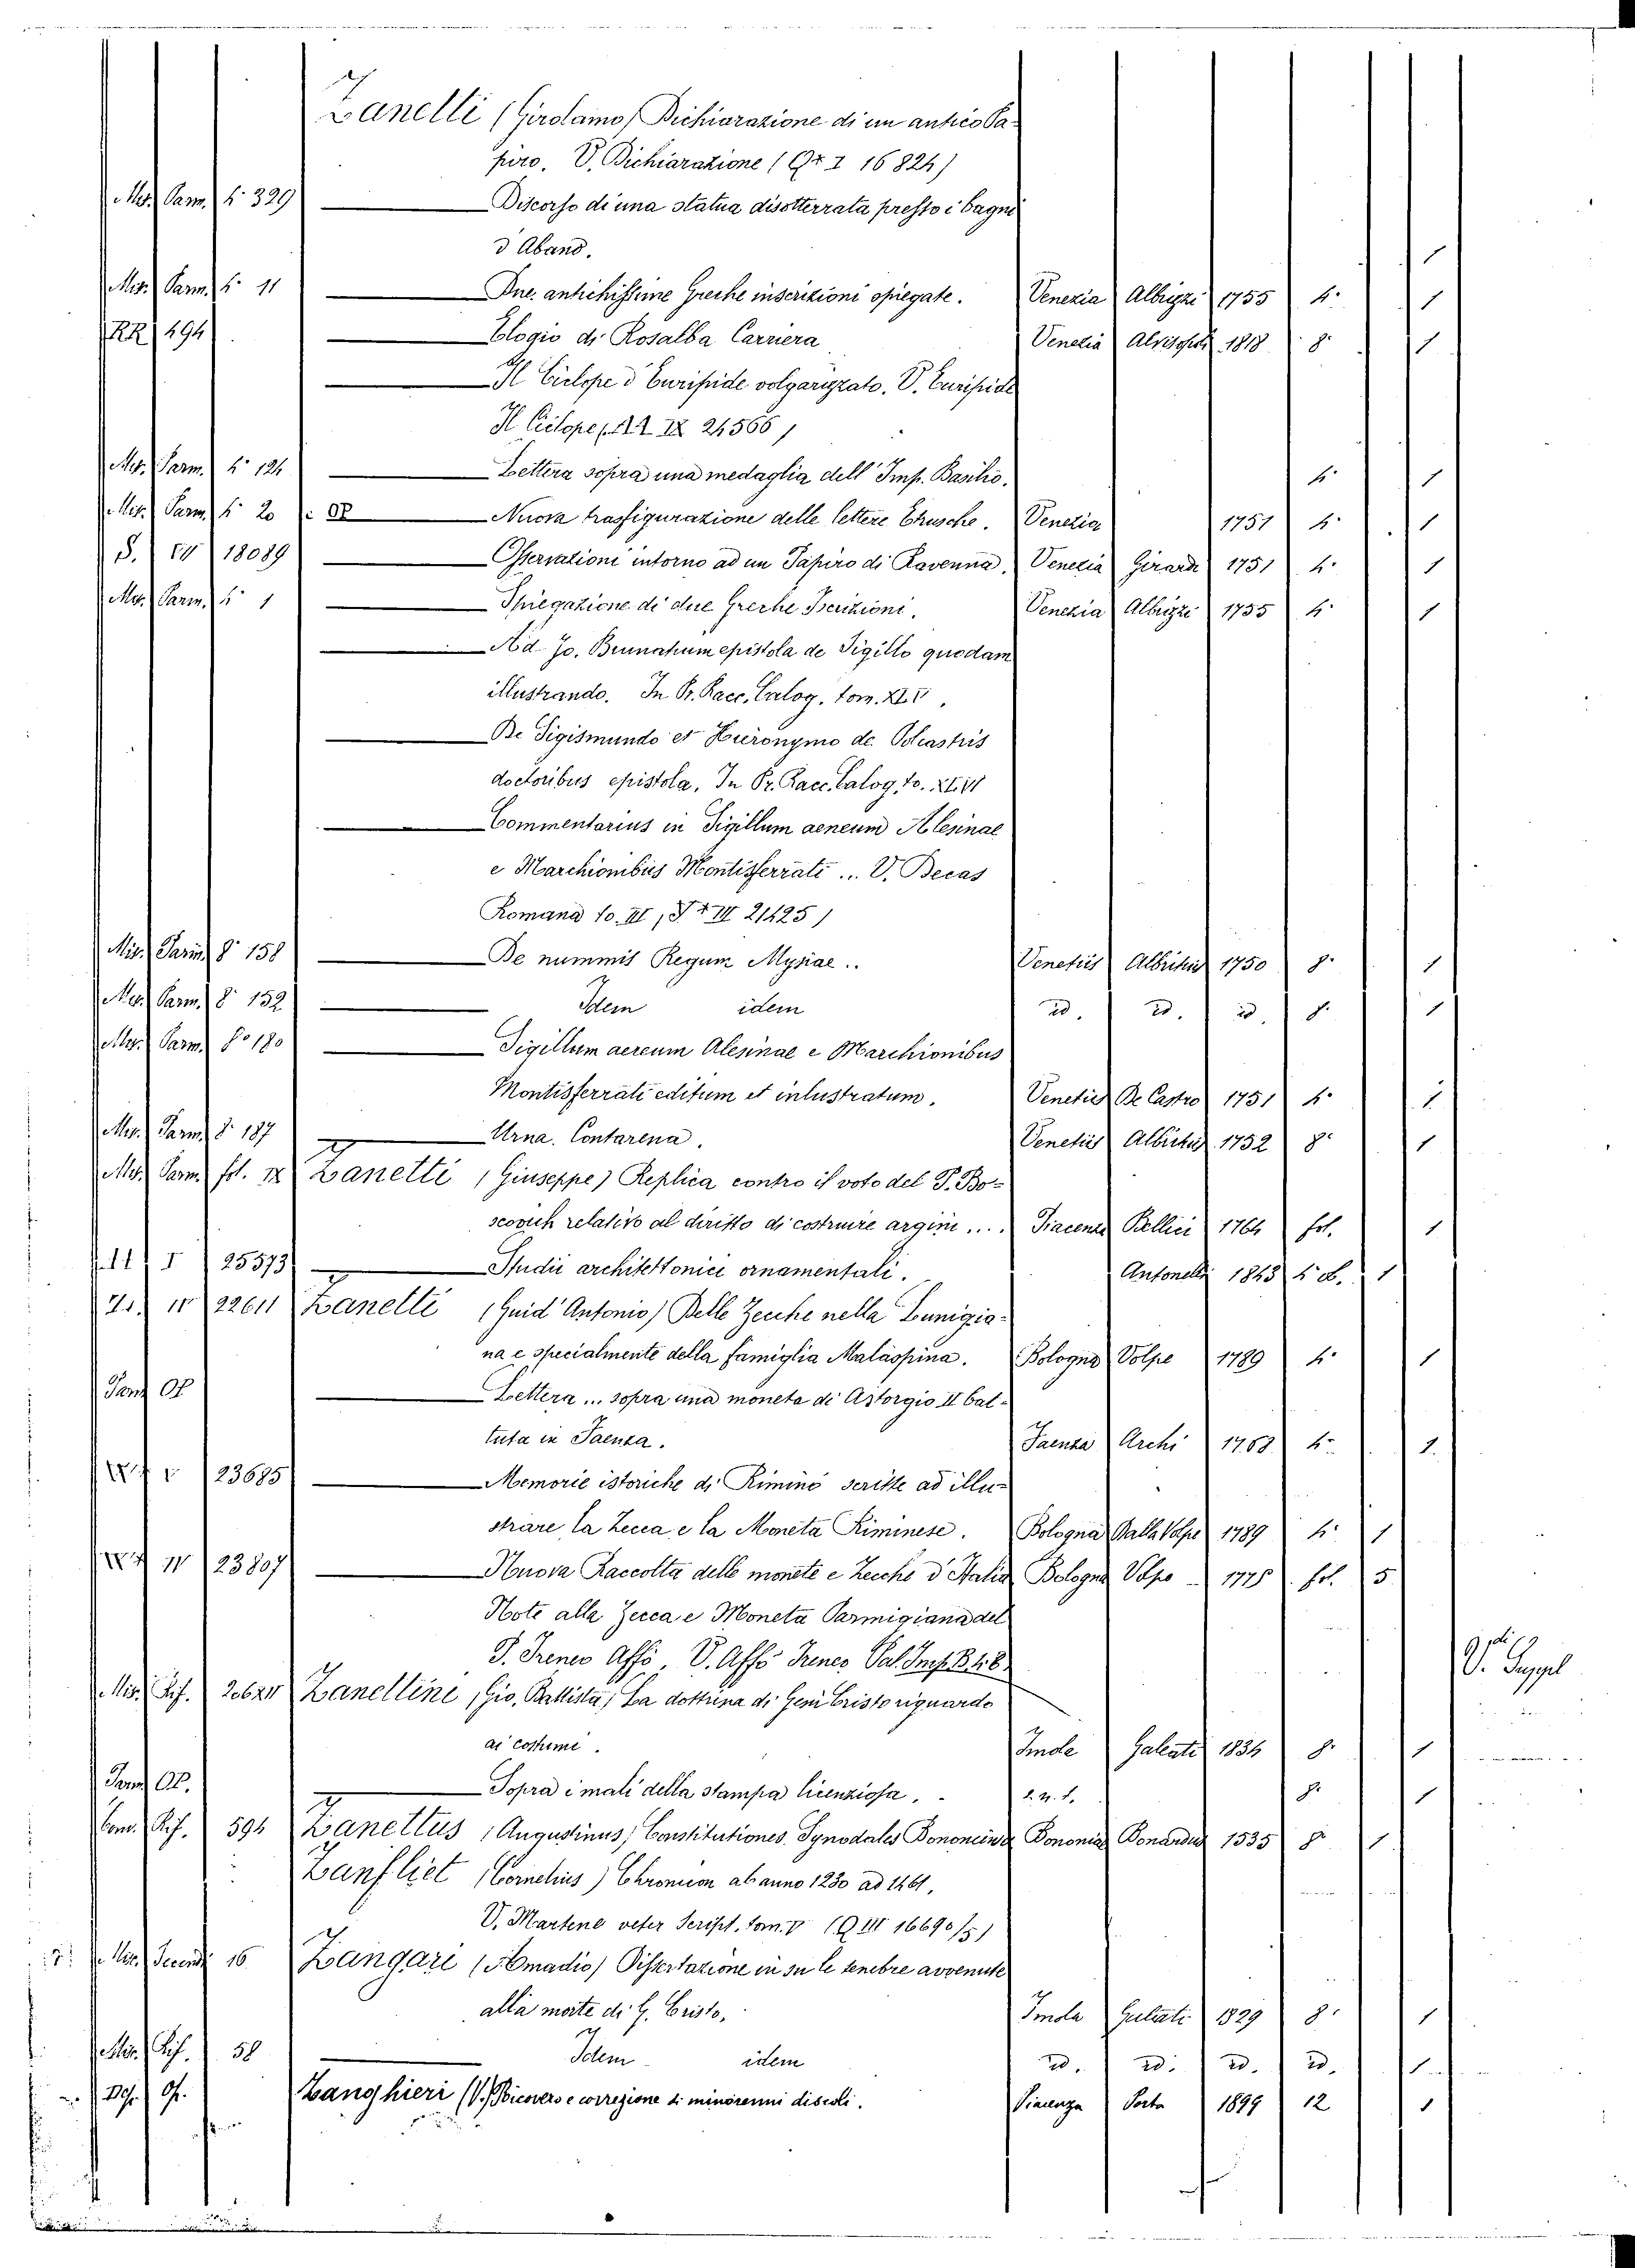 Zanelli (Girolamo) Dichiarazione di un antico Pa-
piro. V. Dichiarazione (Q* I 16824)
Misc. Parm. 4.° 329 Discorso di una statua disotterrata presso i bagni
d'Abano. 1
Misc. Parm. 4.° 11 Due antichissime Greche inscrizioni spiegate. Venezia Albrizzi 1755 4.° 1
RR 494 Elogio di Rosalba Carriera Venezia Alvisopoli 1818 8.° 1
Il Ciclope d'Euripide volgarizzato. V. Euripide
Il Ciclope ( IX 24566)
Misc. Parm. 4.° 124 Lettera sopra una medaglia dell'Imp. Basilio. 4.° 1
Misc. Parm. 4.° 20 Nuova trasfigurazione delle lettere Etrusche. Venezia 1751 4.° 1
S. IV 18089 Osservazioni intorno ad un Papiro di Ravenna. Venezia Girardi 1751 4.° 1
Misc. Parm. 4.° 1 Spiegazione di due Greche Iscrizioni. Venezia Albrizzi 1755 4.° 1
Ad Jo. Brunatium epistola de Sigillo quodam
illustrando. In Pr. Racc. Calog. tom. XLV.
De Sigismundo et Hieronymo de Polcastris
doctoribus epistola. In Pr. Racc. Calog. to. XLVI
Commentarius in Sigillum aeneum Alesinae
e Marchionibus Montisferrati ... V. Decas
Romana to. III, ( III 21425)
Misc. Parm. 8.° 158 De nummis Regum Mysiae .. Venetiis Albritius 1750 8.° 1
Misc. Parm. 8.° 152 Idem idem id. id. id. 8.° 1
Misc. Parm. 8.° 180 Sigillum aereum Alesinae e Marchionibus
Montisferrati editum et inlustratum. Venetiis De Castro 1751 4.° 1
Misc. Parm. 8.° 187 Urna Contarena. Venetiis Albritius 1752 8.° 1
Misc. Parm. fol. IX Zanetti (Giuseppe) Replica contro il voto del P. Bo-
scovich relativo al diritto di costruire argini.... Piacenza Bellici 1764 fol. 1
I 25573 Studii architettonici ornamentali. Antonelli 1843 4.° 1
IV 22611 Zanetti (Guid'Antonio) Delle Zecche nella Lunigia-
na e specialmente della famiglia Malaspina. Bologna Volpe 1789 4.° 1
Parm Op Lettera ... sopra una moneta di Astorgio II bat-
tuta in Faenza. Faenza Archi 1768 4.° 1
V 23685 Memorie istoriche di Rimino scritte ad illu-
strare la Zecca e la Moneta Riminese. Bologna Dalla Volpe 1789 4.° 1
IV 23807 Nuova Raccolta delle monete e Zecche d'Italia Bologna Volpe 1775 fol. 5
Note alla Zecca e Moneta Parmigiana del
P. Ireneo Affò. V. Affò Ireneo Pal. Imp.
V. Suppl
Misc. Rif. Zanellini (Gio. Battista) La dottrina di Gesù Cristo riguardo
ai costumi. Imola Galeati 1834 8.° 1
Parm Op. Sopra i mali della stampa licenziosa. s. n. t. 8.° 1
Com. Rif. 594 Zanettus (Augustinus) Constitutiones Synodales Bononiens. Bononiae Bonardus 1535 8.° 1
Zanfliet (Cornelius) Chronicon ab anno 1230 ad 1461.
V. Martene veter Script. tom. V (Q III 16690/5)
Misc. Recenti 16 Zangari (Amadio) Dissertazione in su le tenebre avvenute
alla morte di G. Cristo. Imola Galeati 1829 8.° 1
Misc. Rif. 58 Idem idem id. id. id. id. 1
Op. Zanghieri (V.) Ricovero e correzione di minorenni discoli. Vicenza Porto 1899 12 1